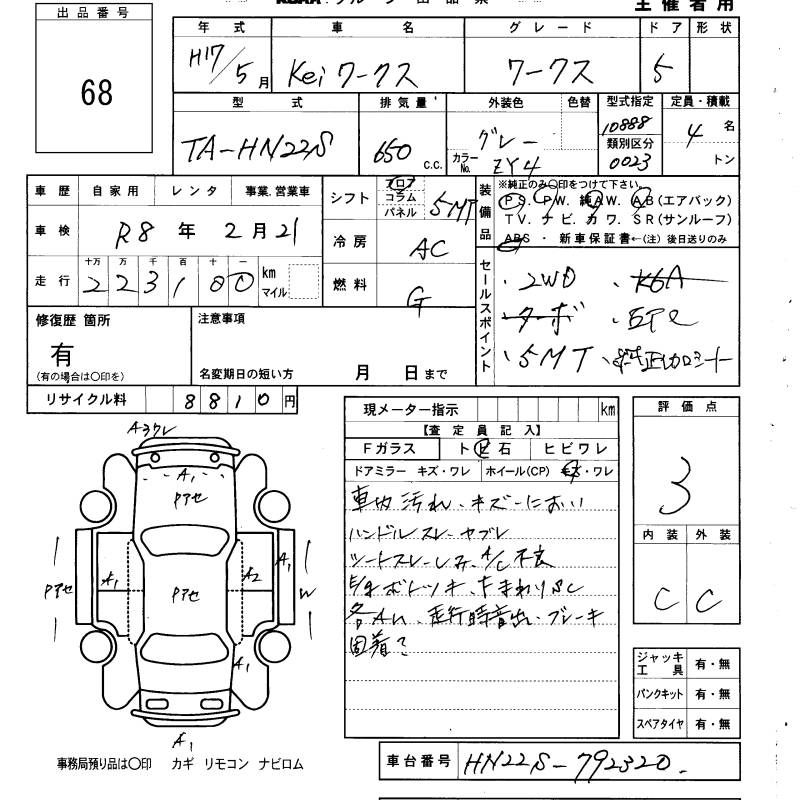 主催者用
出品番号
68
年式 車名 グレード ドア 形状
H17/5月 Keiワークス ワークス 5
型式 排気量 外装色 色替 型式指定 定員・積載
TA-HN22S 650 c.c. グレー 10888 4名
カラーNo. ZY4 類別区分 0023 トン
車歴 自家用 レンタ 事業.営業車
車検 R8年2月21
十万 万 千 百 十 一
走行 223100 km マイル
シフト フロア コラム パネル 5MT
冷房 AC
燃料 G
装備品 ※純正のみ〇印をつけて下さい。
PS. PW. 純AW. AB(エアバック)
TV. ナビ. カワ. SR(サンルーフ)
ABS ・ 新車保証書←(注) 後日送りのみ
セールスポイント
・2WD ・K6A
ターボ ・ETC
・5MT
修復歴 箇所
有
(有の場合は〇印を)
注意事項
名変期日の短い方 月 日まで
リサイクル料 8810円
現メーター指示 km
【査定員記入】
Fガラス トビ石 ヒビワレ
ドアミラー キズ・ワレ ホイール(CP) キズ・ワレ
車内汚れ・キズ・におい
ハンドルスレ・ヤブレ
シートスレ・シミ A/C不良
各A.U. 走行時音出. ブレーキ
固着こ
評価点
3
内装 外装
C C
ジャッキ工具 有・無
パンクキット 有・無
スペアタイヤ 有・無
A3ワレ
A1
Pアセ
A1
Pアセ
A1
Pアセ
A2
W
A1
A1
事務局預り品は〇印 カギ リモコン ナビロム
車台番号 HN22S-792320.